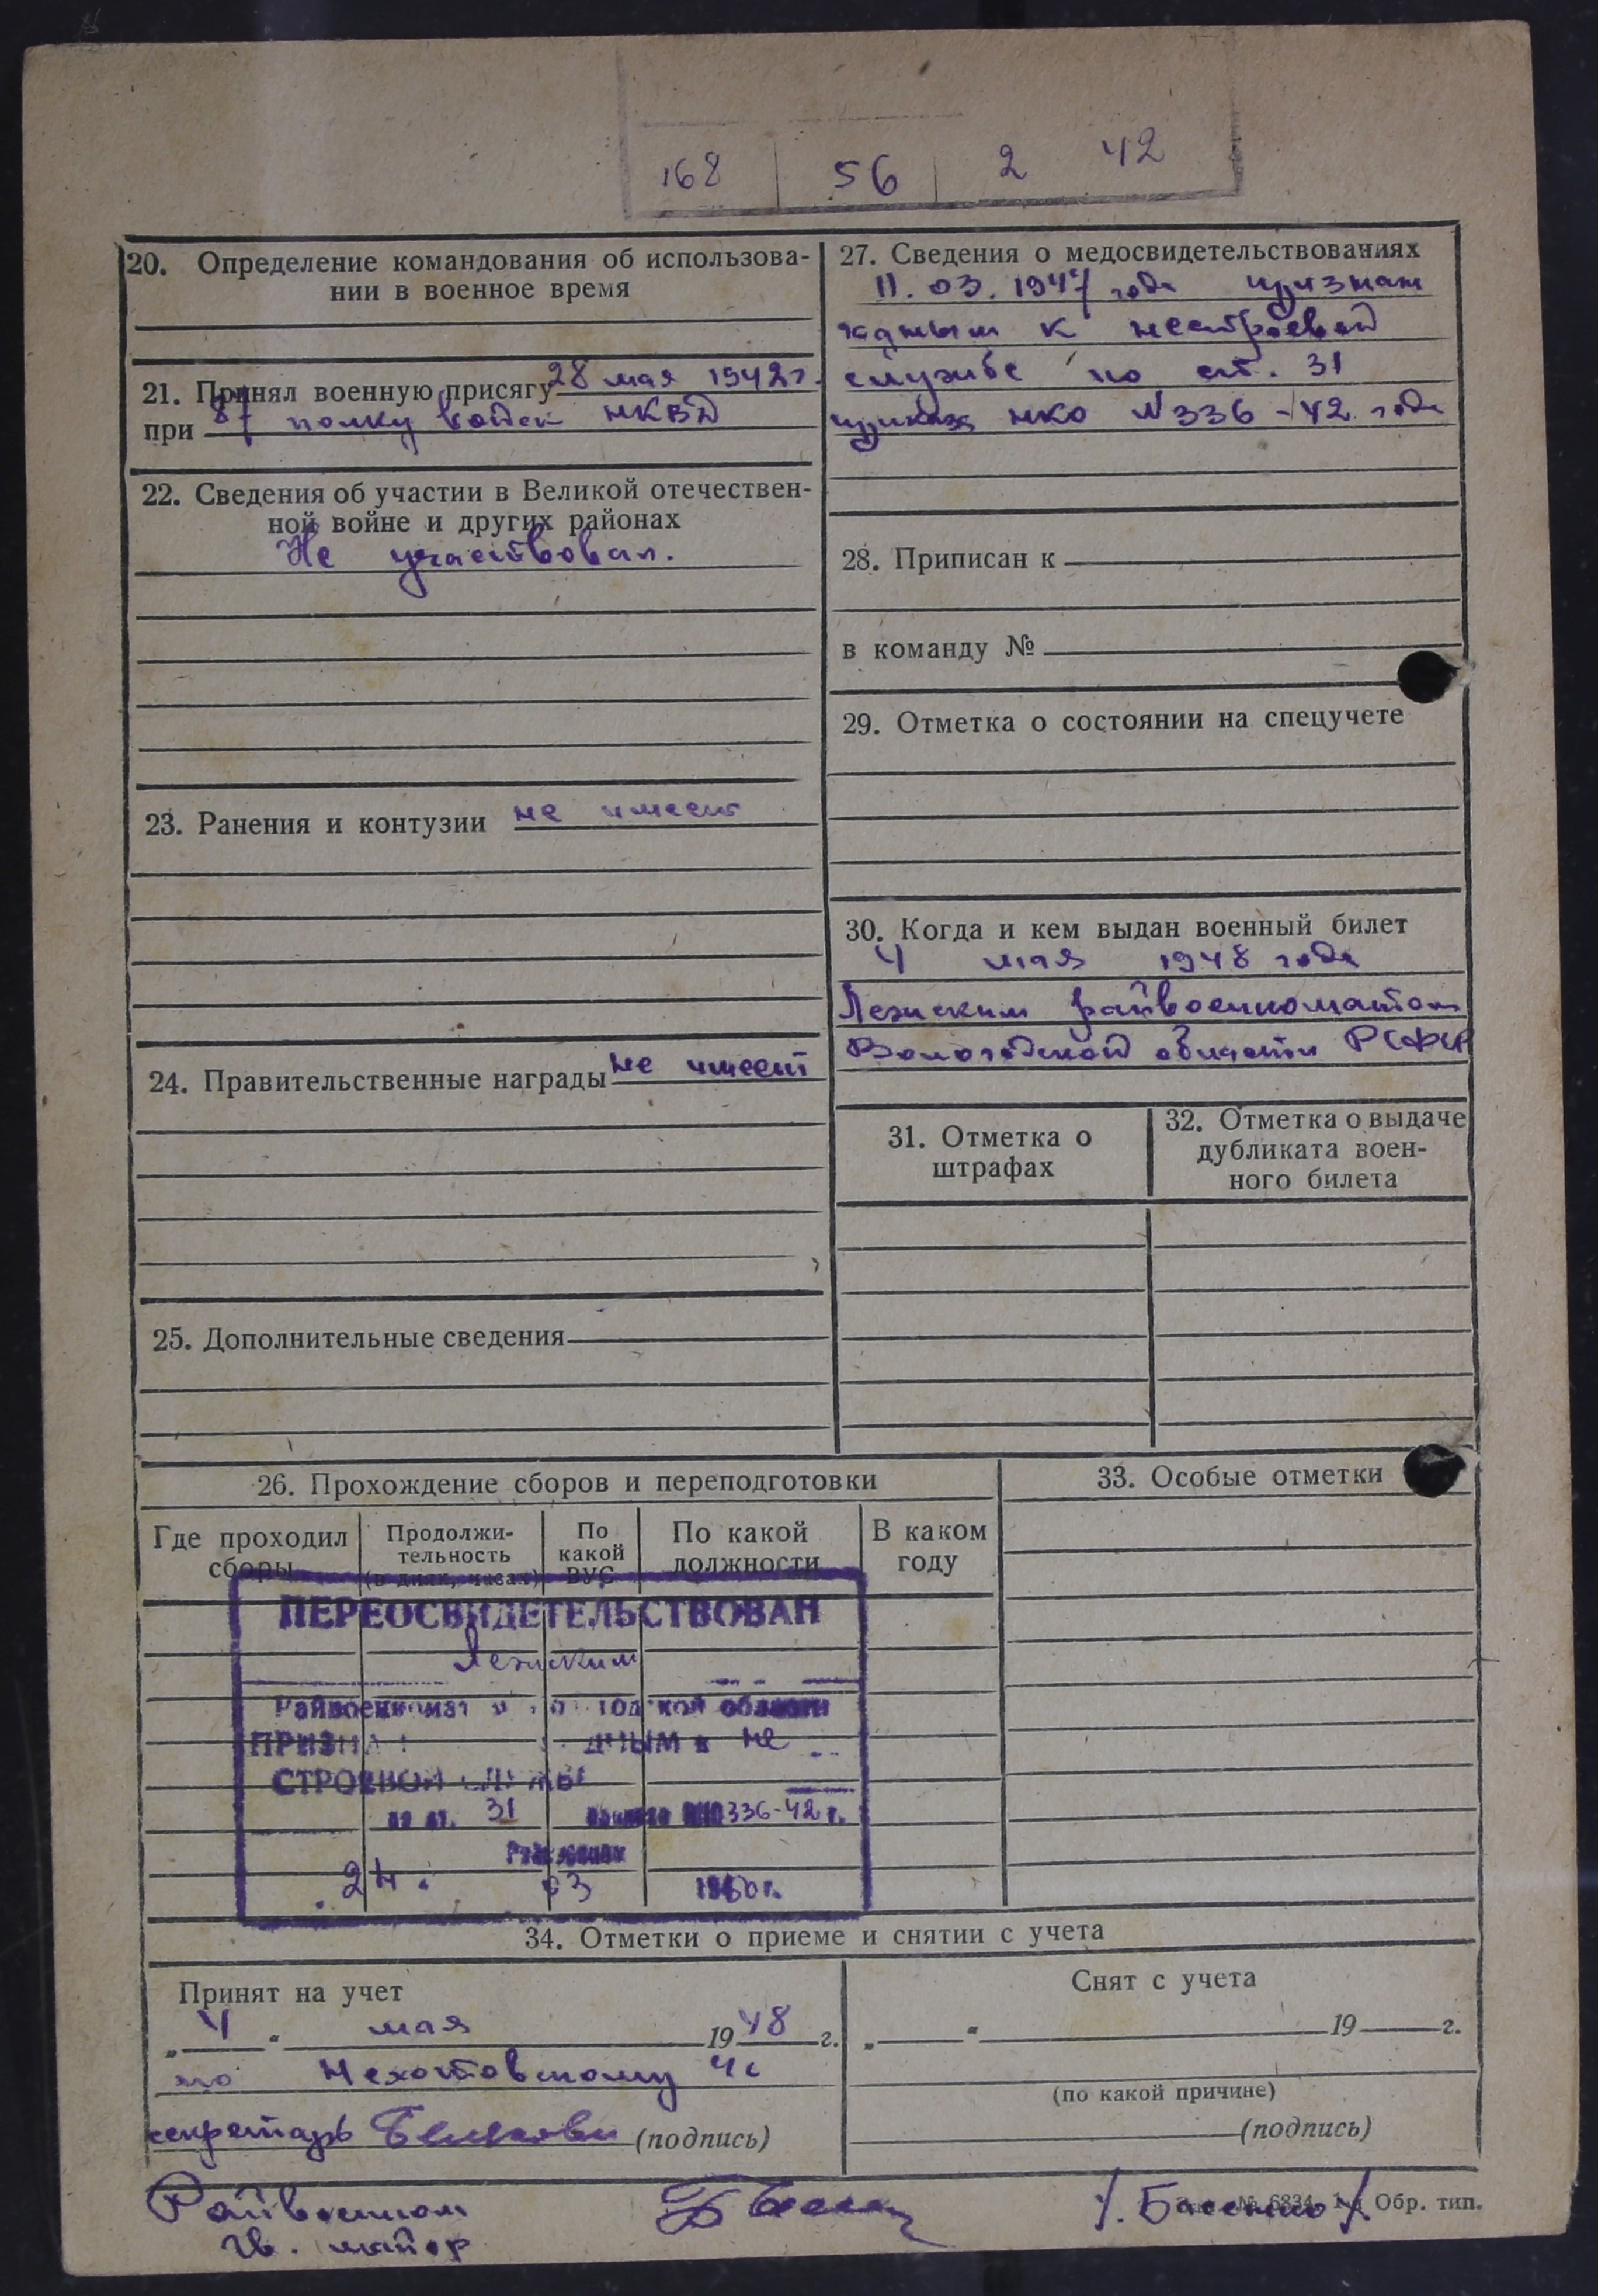 168 56 2 42
20. Определение командования об использова-
нии в военное время
21. Принял военную присягу 28 мая 1942 г.
при 87 полку войск НКВД
22. Сведения об участии в Великой отечествен-
ной войне и других районах
Не участвовал.
23. Ранения и контузии не имеет
24. Правительственные награды не имеет
25. Дополнительные сведения
27. Сведения о медосвидетельствованиях
11.03.1947 года признан
годным к нестроевой
службе по ст. 31
приказа НКО №336-42 года
28. Приписан к
в команду №
29. Отметка о состоянии на спецучете
30. Когда и кем выдан военный билет
4 мая 1948 года
Лежским райвоенкоматом
Вологодской области РСФСР
31. Отметка о
штрафах
32. Отметка о выдаче
дубликата воен-
ного билета
26. Прохождение сборов и переподготовки
Где проходил
сборы
Продолжи-
тельность
(в днях, часах)
По
какой
ВУС
По какой
должности
В каком
году
ПЕРЕОСВИДЕТЕЛЬСТВОВАН
Лежским
Райвоенкомат области
ПРИЗНАН ДНЫМ к не
СТРОЕВОЙ СЛУЖБЕ
по ст. 31 336-42 г.
24. 03 1950 г.
33. Особые отметки
34. Отметки о приеме и снятии с учета
Принят на учет
„4“ мая 1948 г.
по
секретарь (подпись)
Снят с учета
„ “ 19 г.
(по какой причине)
(подпись)
Райвоенком
Гв. майор
/. Басенко /
№ 6834 Обр. тип.